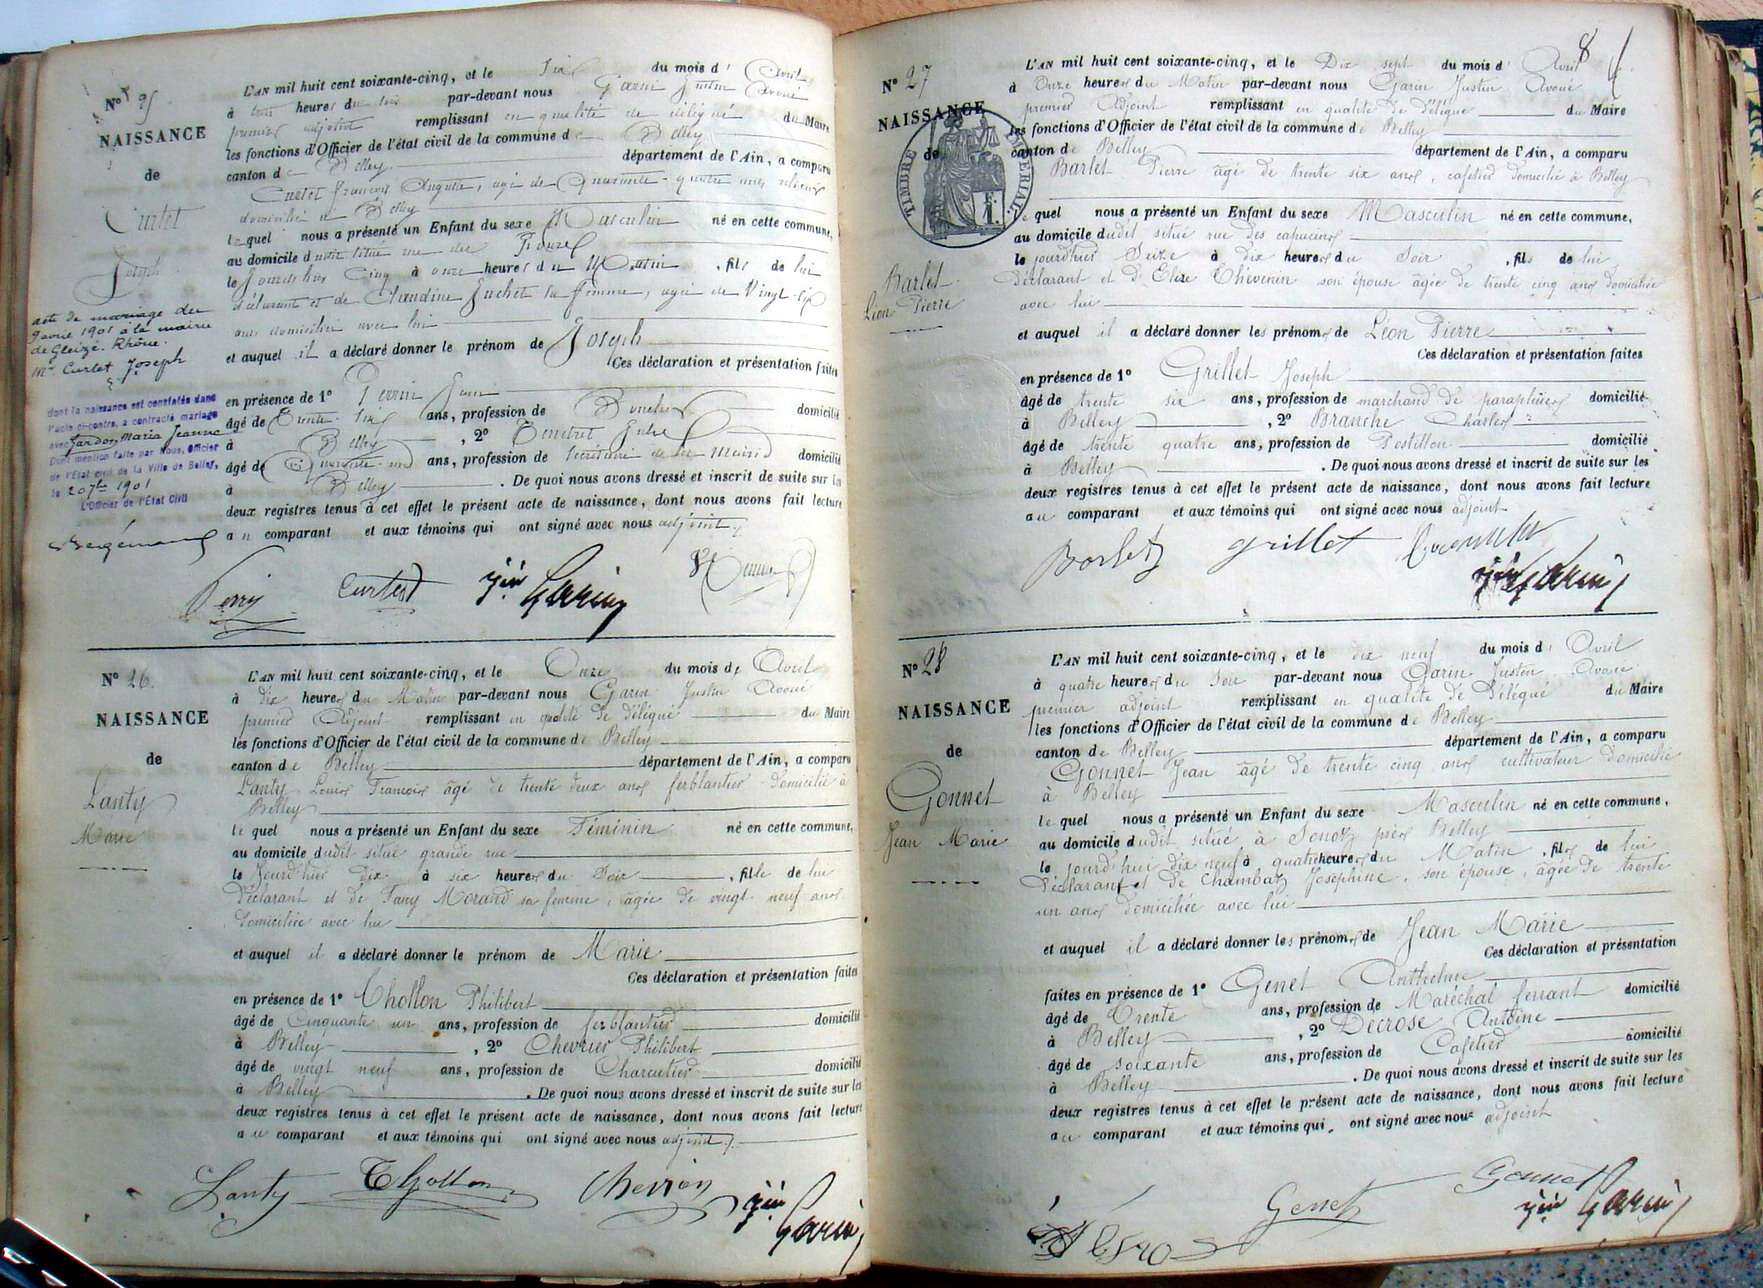 N° 25
NAISSANCE
de
Curtet
Joseph
acte de mariage du
9 avril 1901 à la mairie
de Gleizé. Rhône.
Mr Curtet Joseph
dont la naissance est constatée dans
l'acte ci-contre, a contracté mariage
avec Jardon Maria Jeanne
Dont mention faite par Nous, Officier
de l'État civil de la Ville de Belley,
le 20 7bre 1901
L'Officier de l'État Civil
L'AN mil huit cent soixante-cinq, et le Six du mois d'Avril
à trois heures du soir par-devant nous Garin Justin Avoué
premier adjoint remplissant en qualité de délégué du Maire
les fonctions d'Officier de l'état civil de la commune de Belley
canton de Belley département de l'Ain, a comparu
Curtet François Auguste, âgé de Quarante-quatre ans, relieur
domicilié à Belley
lequel nous a présenté un Enfant du sexe Masculin né en cette commune,
au domicile dudit situé rue des
le Jourd'hier Cinq à onze heures du Matin, fils de lui
déclarant et de Claudine Juchet sa femme, âgée de Vingt-six
ans domiciliée avec lui
et auquel il a déclaré donner le prénom de Joseph
Ces déclaration et présentation faites
en présence de 1° Perrin
âgé de Trente-six ans, profession de domicilié
à Belley, 2°
âgé de Quarante ans, profession de secrétaire de la Mairie domicilié
à Belley. De quoi nous avons dressé et inscrit de suite sur les
deux registres tenus à cet effet le présent acte de naissance, dont nous avons fait lecture
au comparant et aux témoins qui ont signé avec nous adjoint.
Curtet Garin
N° 26.
NAISSANCE
de
Lanty
Marie
L'AN mil huit cent soixante-cinq, et le Onze du mois d'Avril
à dix heures du Matin par-devant nous Garin Justin Avoué
premier Adjoint remplissant en qualité de délégué du Maire
les fonctions d'Officier de l'état civil de la commune de Belley
canton de Belley département de l'Ain, a comparu
Lanty Louis François âgé de trente deux ans ferblantier domicilié à
Belley
lequel nous a présenté un Enfant du sexe Féminin né en cette commune,
au domicile dudit situé grande rue
le Jourd'hier dix à six heures du Soir, fille de lui
déclarant et de Fany Morand sa femme, âgée de vingt neuf ans
domiciliée avec lui
et auquel il a déclaré donner le prénom de Marie
Ces déclaration et présentation faites
en présence de 1° Chollon Philibert
âgé de Cinquante un ans, profession de ferblantier domicilié
à Belley, 2° Chevrier Philibert
âgé de vingt neuf ans, profession de Charcutier domicilié
à Belley. De quoi nous avons dressé et inscrit de suite sur les
deux registres tenus à cet effet le présent acte de naissance, dont nous avons fait lecture
au comparant et aux témoins qui ont signé avec nous adjoint.
Lanty Chollon Garin
8
N° 27
NAISSANCE
de
TIMBRE IMPÉRIAL
Barlet
Léon Pierre
L'AN mil huit cent soixante-cinq, et le Dix sept du mois d'Avril
à Onze heures du Matin par-devant nous Garin Justin Avoué
premier Adjoint remplissant en qualité de délégué du Maire
les fonctions d'Officier de l'état civil de la commune de Belley
canton de Belley département de l'Ain, a comparu
Barlet Pierre âgé de trente six ans, cafetier domicilié à Belley
lequel nous a présenté un Enfant du sexe Masculin né en cette commune,
au domicile dudit situé rue des capucins
le jourd'hier Seize à dix heures du Soir, fils de lui
déclarant et d'Elise Thevenin son épouse âgée de trente cinq ans domiciliée
avec lui
et auquel il a déclaré donner les prénoms de Léon Pierre
Ces déclaration et présentation faites
en présence de 1° Grillet Joseph
âgé de trente six ans, profession de marchand de parapluies domicilié
à Belley, 2° Branche Charles
âgé de trente quatre ans, profession de Postillon domicilié
à Belley. De quoi nous avons dressé et inscrit de suite sur les
deux registres tenus à cet effet le présent acte de naissance, dont nous avons fait lecture
au comparant et aux témoins qui ont signé avec nous adjoint
Barlet Grillet Garin
N° 28
NAISSANCE
de
Gonnet
Jean Marie
L'AN mil huit cent soixante-cinq, et le dix neuf du mois d'Avril
à quatre heures du Soir par-devant nous Garin Justin Avoué
premier adjoint remplissant en qualité de délégué du Maire
les fonctions d'Officier de l'état civil de la commune de Belley
canton de Belley département de l'Ain, a comparu
Gonnet Jean âgé de trente cinq ans cultivateur domicilié
à Belley
lequel nous a présenté un Enfant du sexe Masculin né en cette commune,
au domicile dudit situé à près Belley
le jourd'hui dix neuf à quatre heures du Matin, fils de lui
déclarant et de Chambaz Josephine, son épouse, âgée de trente
un ans domiciliée avec lui
et auquel il a déclaré donner les prénoms de Jean Marie
Ces déclaration et présentation
faites en présence de 1° Genet Anthelme
âgé de Trente ans, profession de Maréchal ferrant domicilié
à Belley, 2° Décrose Antoine
âgé de soixante ans, profession de Cafetier domicilié
à Belley. De quoi nous avons dressé et inscrit de suite sur les
deux registres tenus à cet effet le présent acte de naissance, dont nous avons fait lecture
au comparant et aux témoins qui ont signé avec nous adjoint
Gonnet
Genet Garin